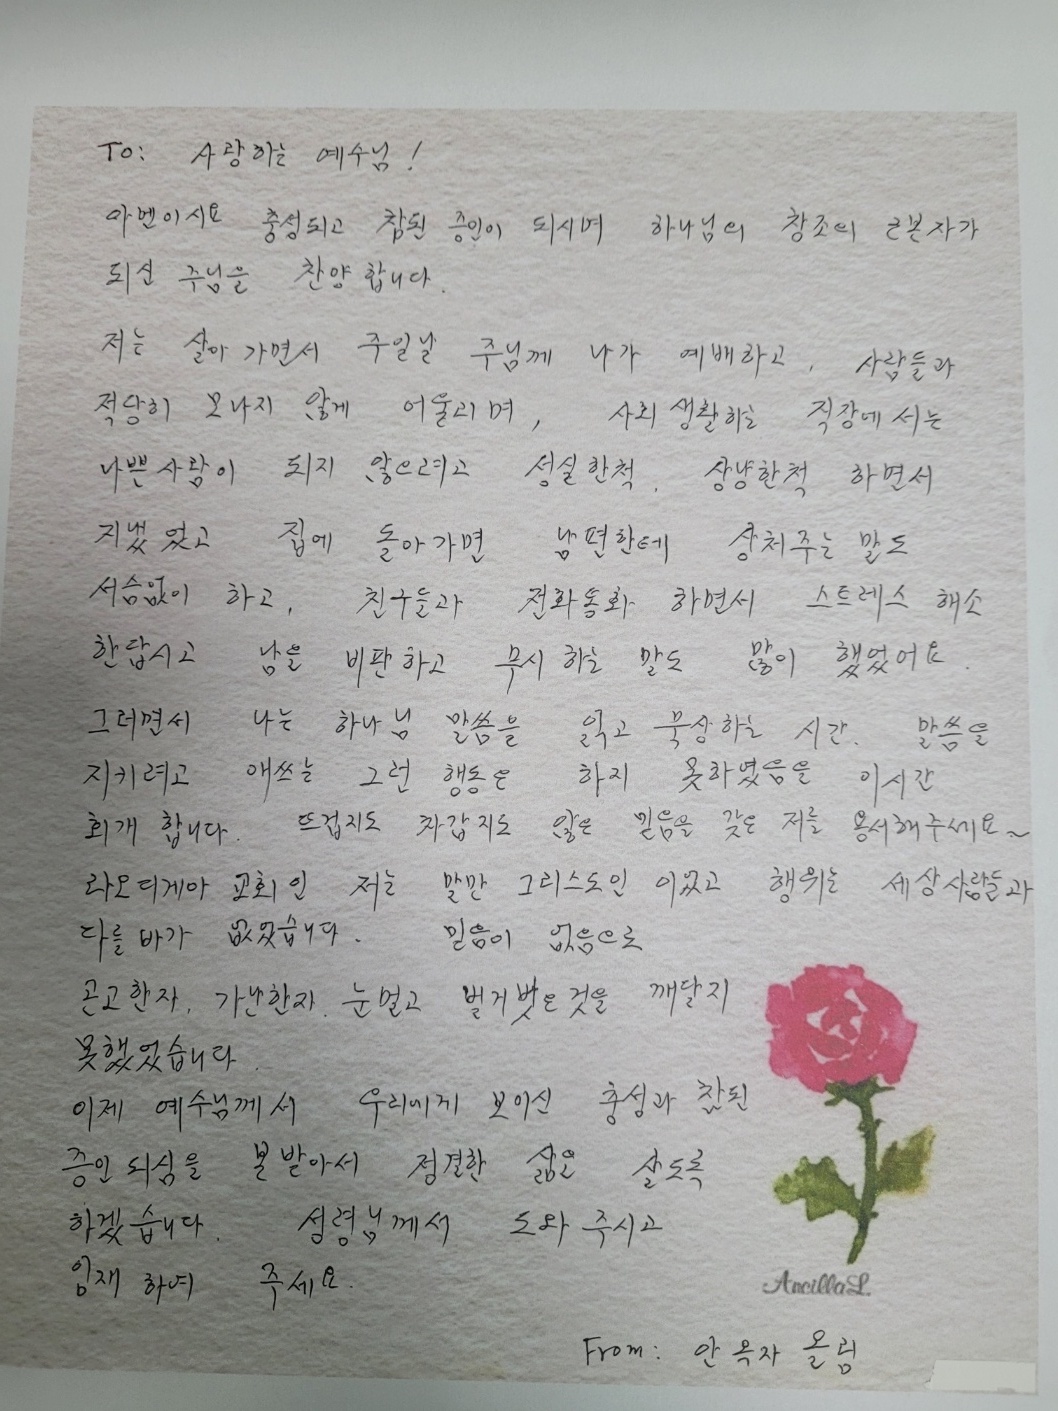 To: 사랑하는 예수님!
아멘이시요 충성되고 참된 증인이 되시며 하나님의 창조의 근본자가
되신 주님을 찬양 합니다.
저는 살아 가면서 주일날 주님께 나가 예배하고, 사람들과
적당히 모나지 않게 어울리며, 사회 생활하는 직장에서는
나쁜사람이 되지 않으려고 성실한척, 상냥한척 하면서
지냈었고 집에 돌아가면 남편한테 상처주는 말도
서슴없이 하고, 친구들과 전화통화 하면서 스트레스 해소
한답시고 남을 비판하고 무시하는 말도 많이 했었어요.
그러면서 나는 하나님 말씀을 읽고 묵상하는 시간, 말씀을
지키려고 애쓰는 그런 행동은 하지 못하였음을 이시간
회개 합니다. 뜨겁지도 차갑지도 않은 믿음을 갖은 저를 용서해주세요~
라오디게아 교회인 저는 말만 그리스도인 이었고 행위는 세상사람들과
다를 바가 없었습니다. 믿음이 없음으로
곤고한자, 가난한자, 눈멀고 벌거벗은것을 깨닫지
못했었습니다.
이제 예수님께서 우리에게 보이신 충성과 참된
증인 되심을 본받아서 정결한 삶은 살도록
하겠습니다. 성령님께서 도와 주시고
임재 하여 주세요.
AncillaL.
From: 안옥자 올림